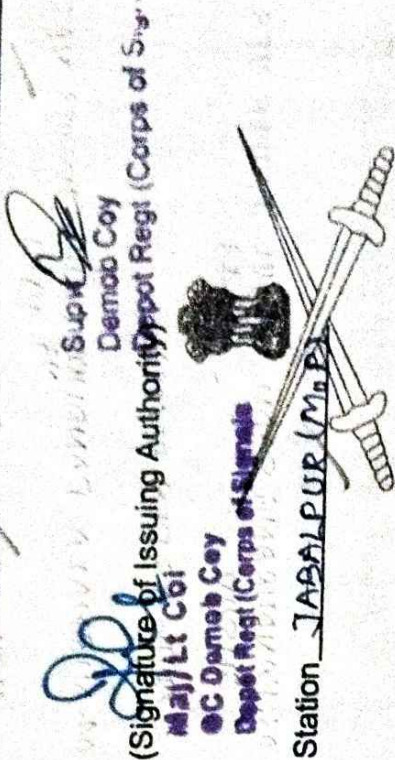 Supvr
Demob Coy
Depot Regt (Corps of Sig
(Signature of Issuing Authority)
Maj/Lt Col
OC Demob Coy
Depot Regt (Corps of Signals
Station JABALPUR (M.P)